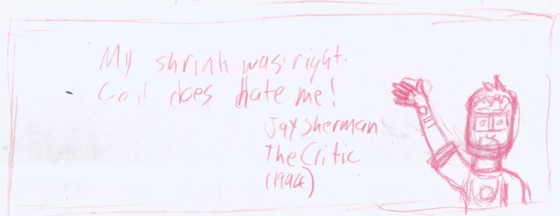 My shrink was right.
God does hate me!
Jay Sherman
The Critic
(1994)